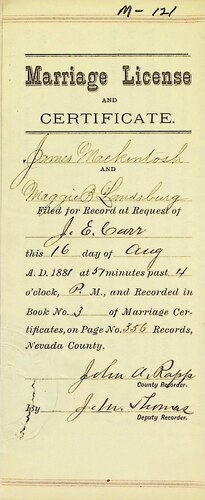 M - 121
Marriage License
AND
CERTIFICATE.
James Mackintosh
AND
Maggie B. Landsburg
Filed for Record at Request of
J. E. Carr
this 16 day of Aug
A. D. 1881 at 57 minutes past 4
o'clock, P. M., and Recorded in
Book No. 3 of Marriage Cer-
tificates, on Page No. 356 Records,
Nevada County.
John A. Rapp
County Recorder.
By Jno. Thomas
Deputy Recorder.